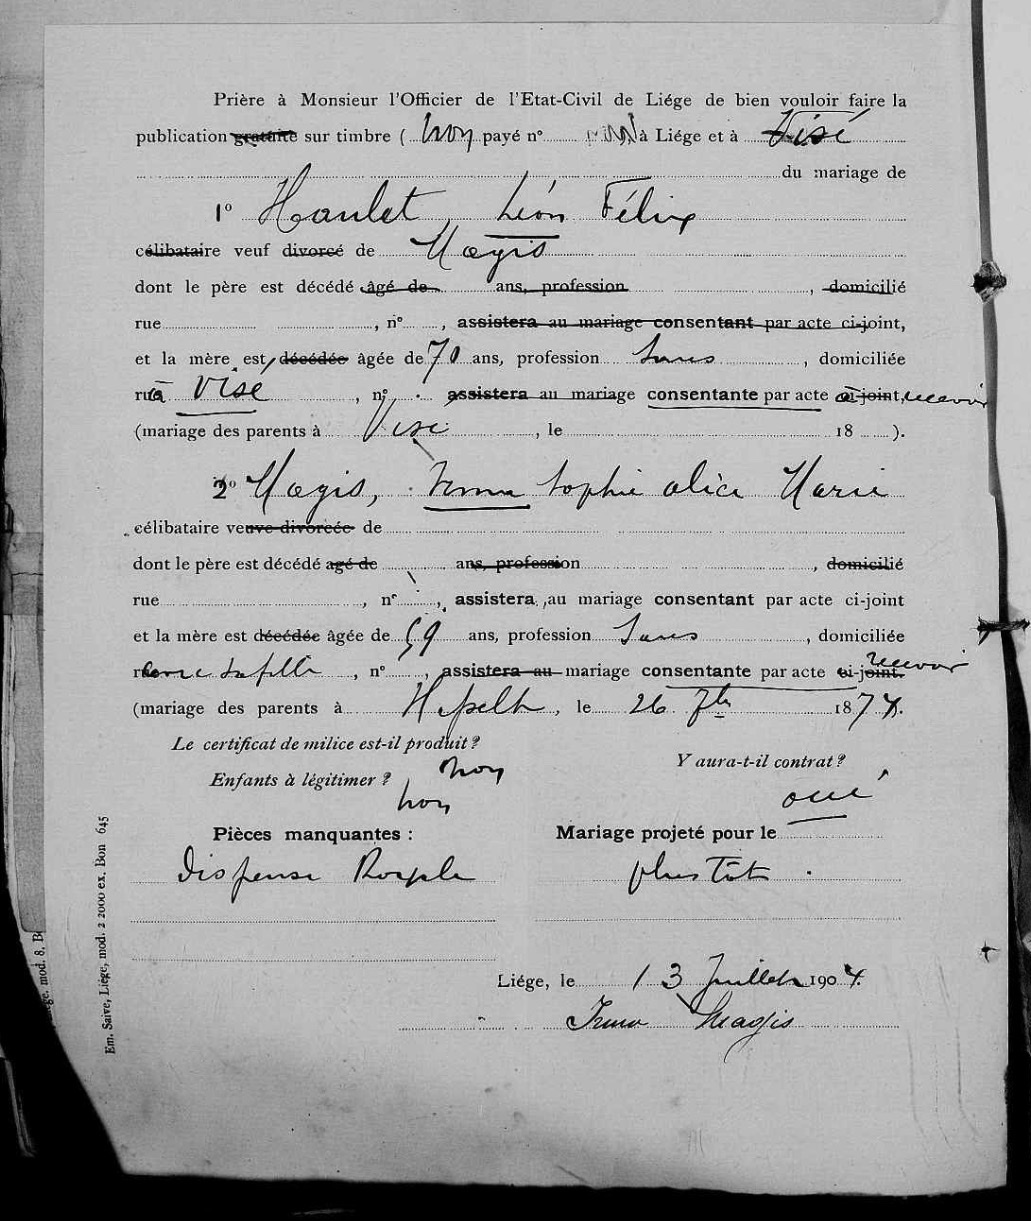 Prière à Monsieur l'Officier de l'Etat-Civil de Liége de bien vouloir faire la
publication gratuite sur timbre ( non payé n° à Liége et à Visé
du mariage de
1° Haulet, Léon Félix
célibataire veuf divorcé de Magis
dont le père est décédé âgé de ans, profession , domicilié
rue , n° , assistera au mariage consentant par acte ci-joint,
et la mère est décédée âgée de 70 ans, profession Sans , domiciliée
rue à Visé , n° assistera au mariage consentante par acte ci-joint, recevoir
(mariage des parents à Visé , le 18 ).
2° Magis, Irma Sophie Alice Marie
célibataire veuve divorcée de
dont le père est décédé agé de ans, profession , domicilié
rue , n° , assistera au mariage consentant par acte ci-joint
et la mère est décédée âgée de 59 ans, profession Sans , domiciliée
avec sa fille , n° , assistera au mariage consentante par acte ci-joint. recevoir
(mariage des parents à , le 26 7bre 1874.
Le certificat de milice est-il produit ? non
Y aura-t-il contrat ? oui
Enfants à légitimer ? non
Pièces manquantes :
Mariage projeté pour le
Dispense Royale
plus tôt .
Liége, le 13 Juillet 1904.
Irma Magis
Em. Saive, Liége, mod. 2 2000 ex. Bon 645
mod. 8. B